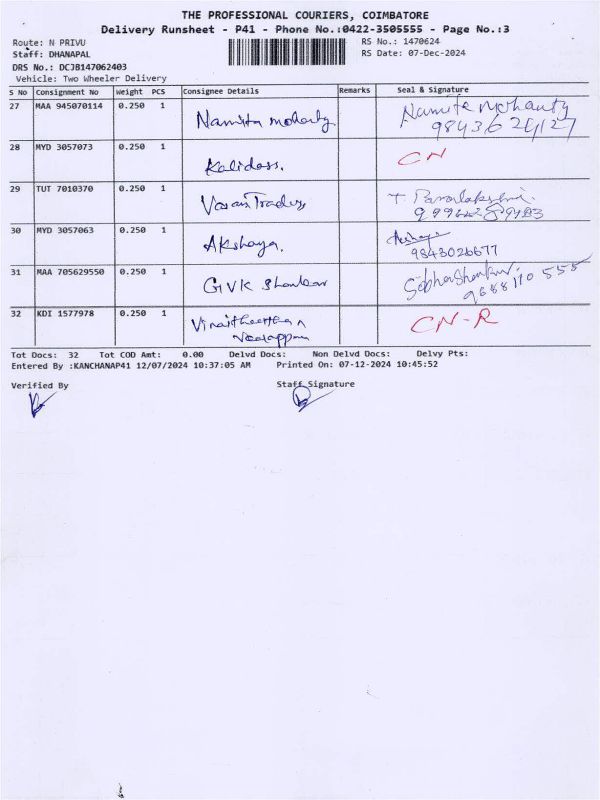 THE PROFESSIONAL COURIERS, COIMBATORE
Delivery Runsheet - P41 - Phone No.:0422-3505555 - Page No.:3
Route: N PRIVU
RS No.: 1470624
Staff: DHANAPAL
RS Date: 07-Dec-2024
DRS No.: DCJB147062403
Vehicle: Two Wheeler Delivery
S No Consignment No Weight PCS Consignee Details Remarks Seal & Signature
27 MAA 945070114 0.250 1 Namita Mohanty Namita Mohanty
28 MYD 3057073 0.250 1 Kalidass. CN
29 TUT 7010370 0.250 1 Vasan Traders
30 MYD 3057063 0.250 1 Akshaya. Akshaya
9843026677
31 MAA 705629550 0.250 1 GVK Shankar
9688110 555
32 KDI 1577978 0.250 1 CN-R
Tot Docs: 32 Tot COD Amt: 0.00 Delvd Docs: Non Delvd Docs: Delvy Pts:
Entered By :KANCHANAP41 12/07/2024 10:37:05 AM Printed On: 07-12-2024 10:45:52
Verified By Staff Signature